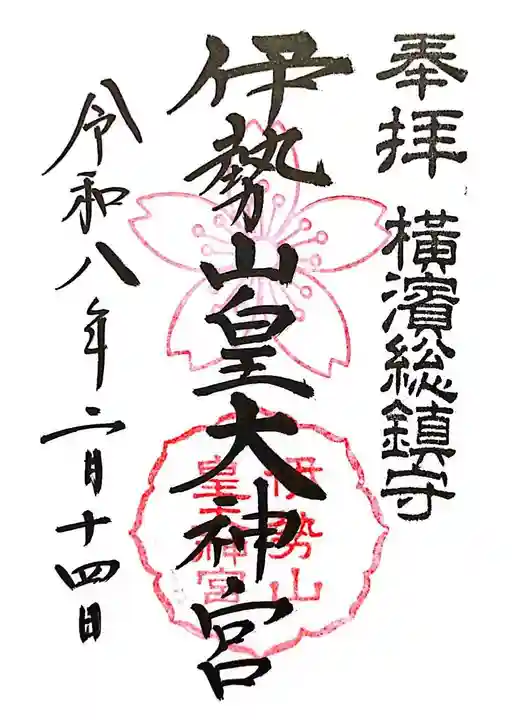 奉拝 橫濱総鎮守
伊勢山皇大神宮
伊勢山
皇大神宮
令和八年二月十四日